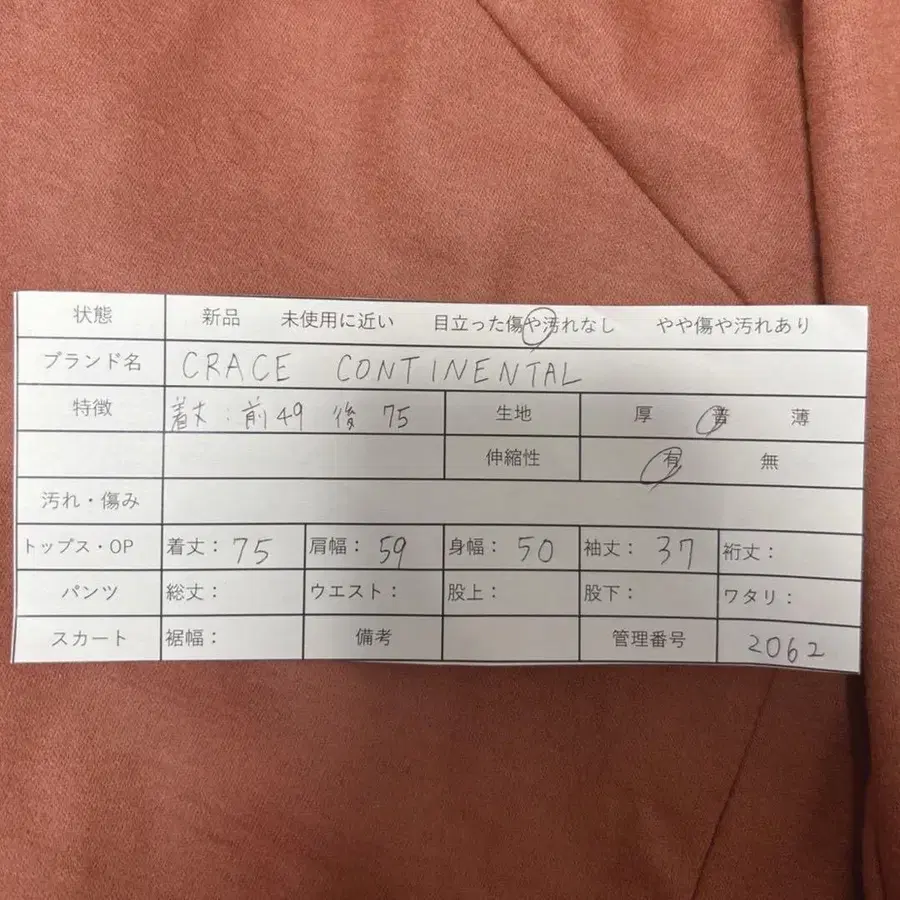 状態 新品 未使用に近い 目立った傷や汚れなし やや傷や汚れあり
ブランド名 CRACE CONTINENTAL
特徴 着丈：前49 後75 生地 厚 普 薄
伸縮性 有 無
汚れ・傷み
トップス・OP 着丈：75 肩幅：59 身幅：50 袖丈：37 裄丈：
パンツ 総丈： ウエスト： 股上： 股下： ワタリ：
スカート 裾幅： 備考 管理番号 2062